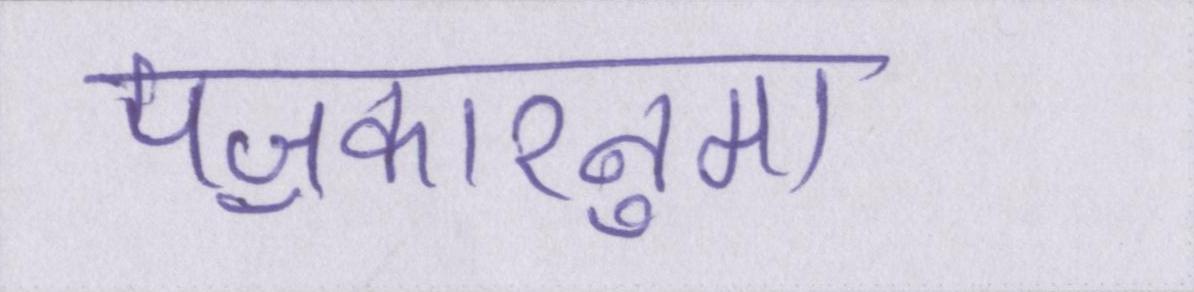 पत्रकारनुमा